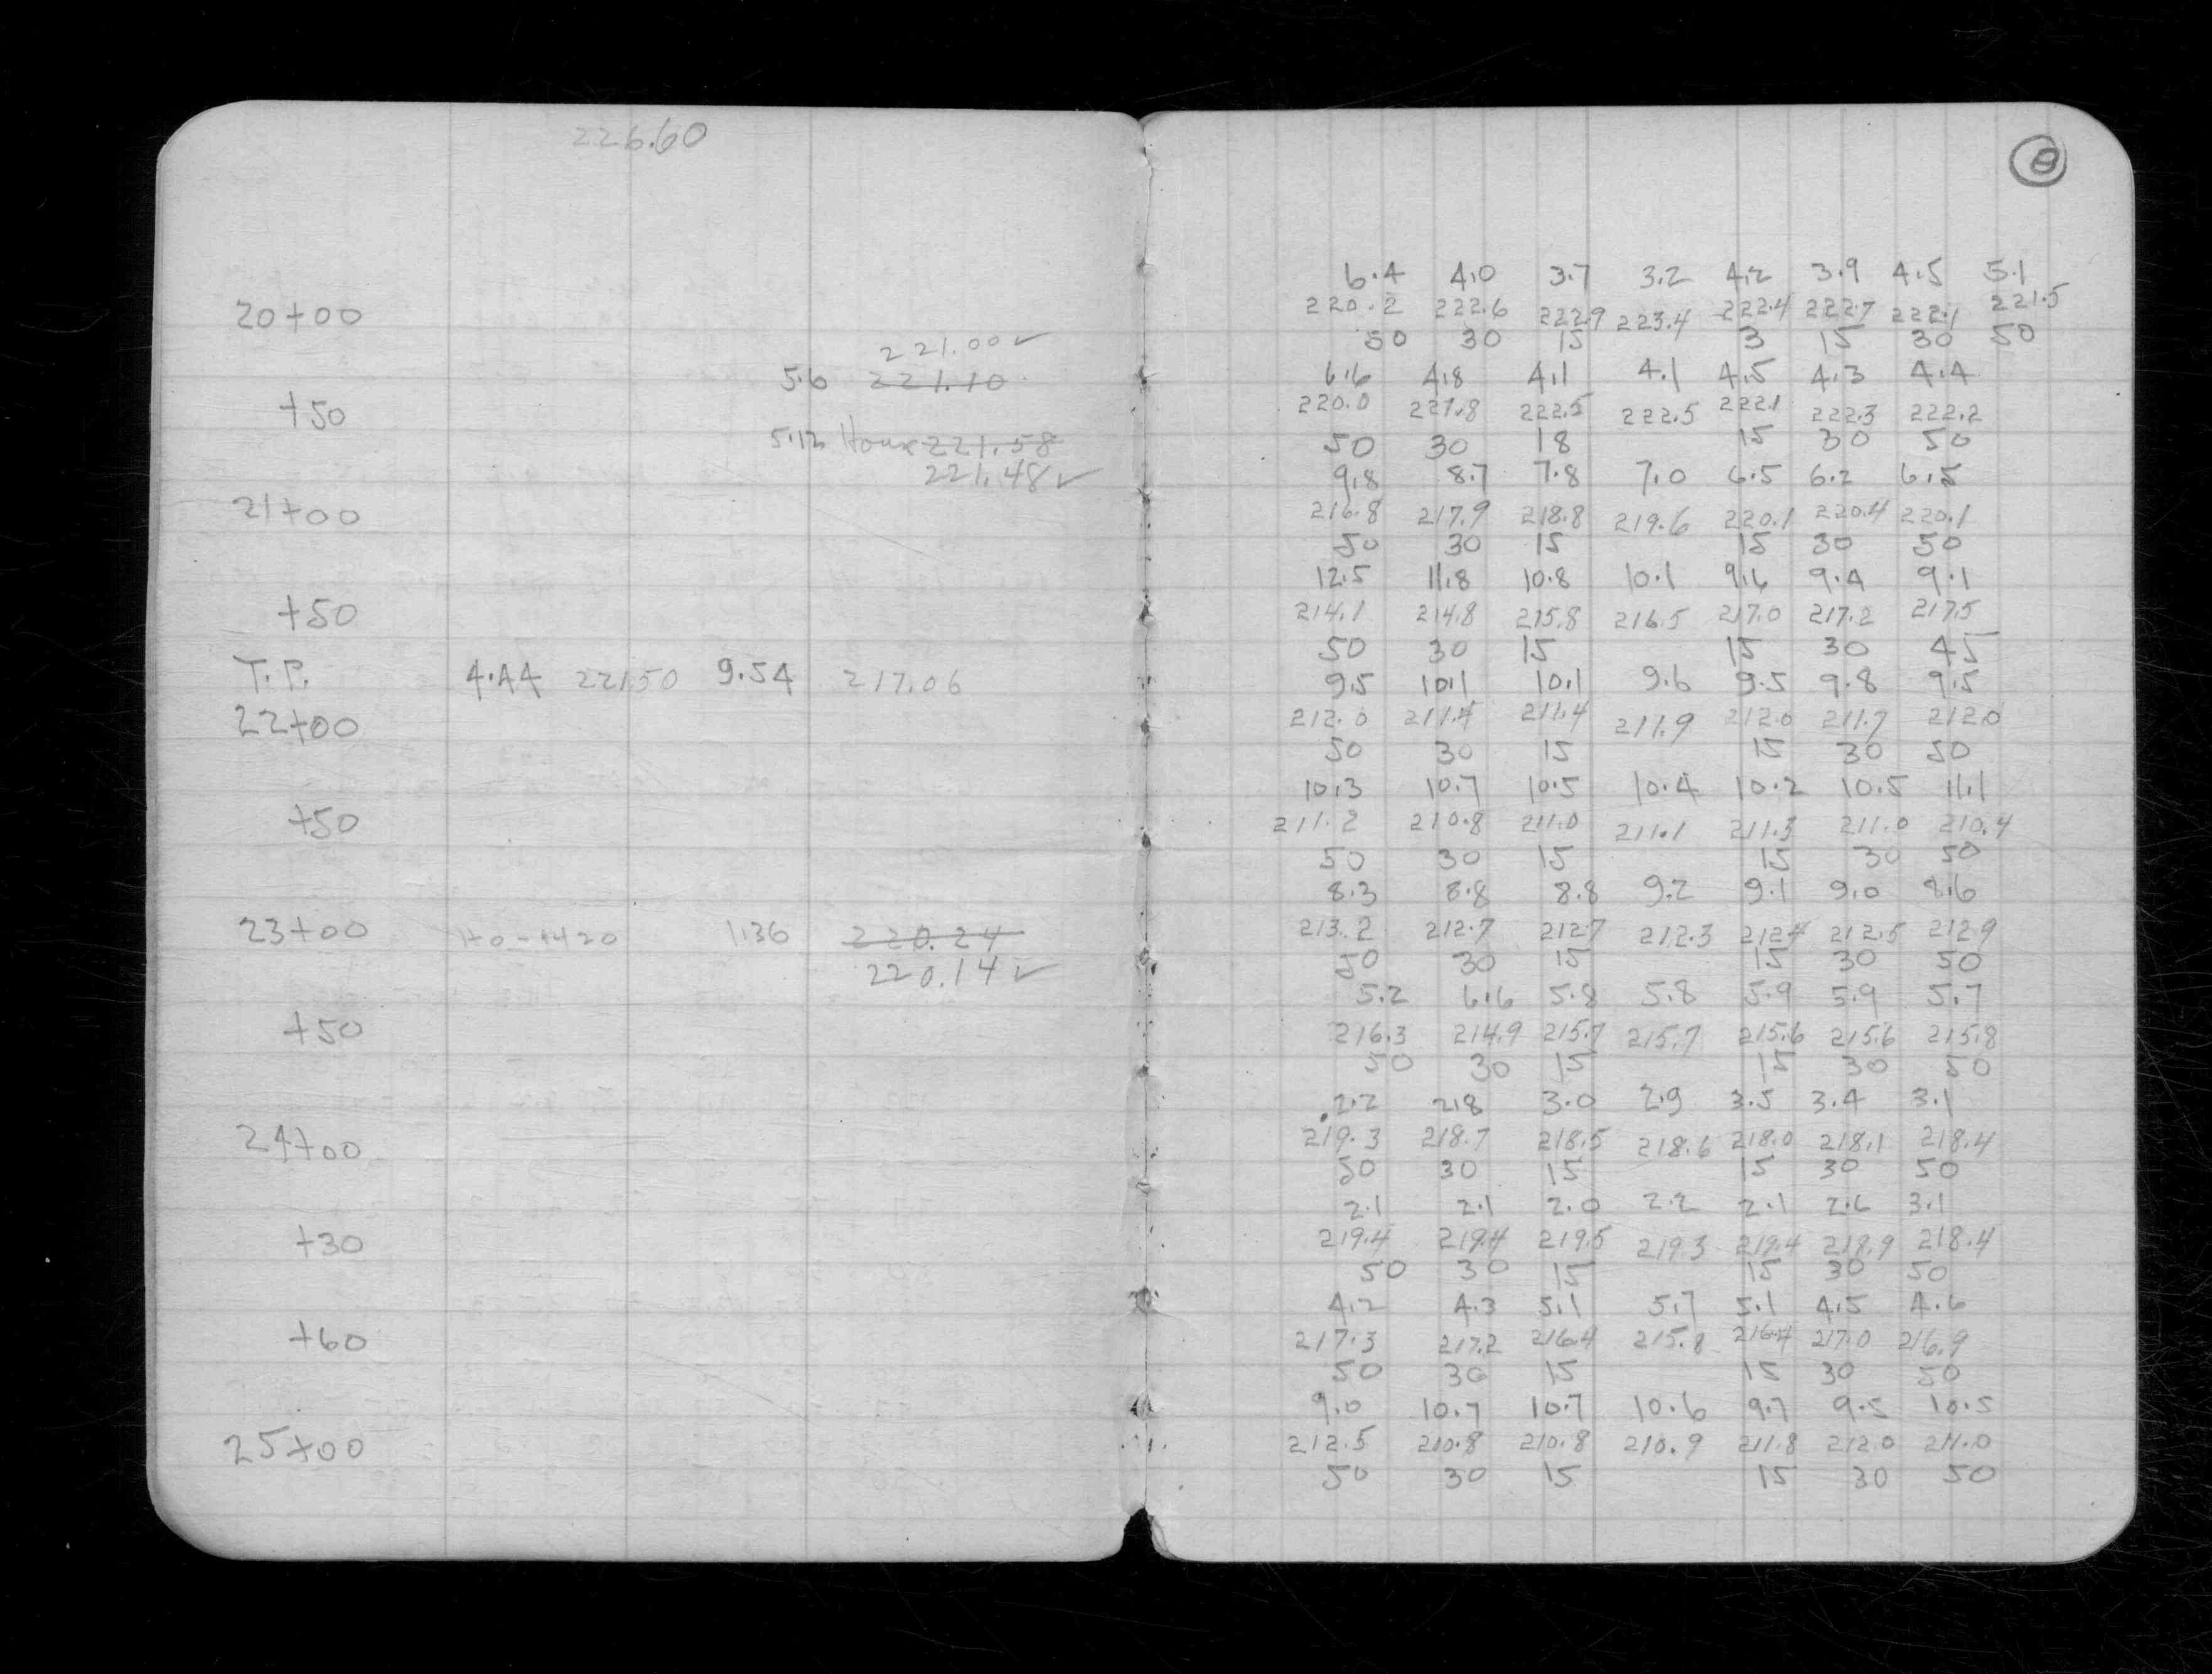 226.60
20+00
221.00 ✓
5.6 221.10
+50
5.12 House 221.58
221.48 ✓
21+00
+50
T.P. 4.44 221.50 9.54 217.06
22+00
+50
23+00 1.36 220.24
220.14 ✓
+50
24+00
+30
+60
25+00
8
6.4 4.0 3.7 3.2 4.2 3.9 4.5 5.1
220.2 222.6 222.9 223.4 222.4 222.7 222.1 221.5
50 30 15 3 15 30 50
6.6 4.8 4.1 4.1 4.5 4.3 4.4
220.0 221.8 222.5 222.5 222.1 222.3 222.2
50 30 18 15 30 50
9.8 8.7 7.8 7.0 6.5 6.2 6.5
216.8 217.9 218.8 219.6 220.1 220.4 220.1
50 30 15 15 30 50
12.5 11.8 10.8 10.1 9.6 9.4 9.1
214.1 214.8 215.8 216.5 217.0 217.2 217.5
50 30 15 15 30 45
9.5 10.1 10.1 9.6 9.5 9.8 9.5
212.0 211.4 211.4 211.9 212.0 211.7 212.0
50 30 15 15 30 50
10.3 10.7 10.5 10.4 10.2 10.5 11.1
211.2 210.8 211.0 211.1 211.3 211.0 210.4
50 30 15 15 30 50
8.3 8.8 8.8 9.2 9.1 9.0 8.6
213.2 212.7 212.7 212.3 212.4 212.5 212.9
50 30 15 15 30 50
5.2 6.6 5.8 5.8 5.9 5.9 5.7
216.3 214.9 215.7 215.7 215.6 215.6 215.8
50 30 15 15 30 50
2.2 2.8 3.0 2.9 3.5 3.4 3.1
219.3 218.7 218.5 218.6 218.0 218.1 218.4
50 30 15 15 30 50
2.1 2.1 2.0 2.2 2.1 2.6 3.1
219.4 219.4 219.5 219.3 219.4 218.9 218.4
50 30 15 15 30 50
4.2 4.3 5.1 5.7 5.1 4.5 4.6
217.3 217.2 216.4 215.8 216.4 217.0 216.9
50 30 15 15 30 50
9.0 10.7 10.7 10.6 9.7 9.5 10.5
212.5 210.8 210.8 210.9 211.8 212.0 211.0
50 30 15 15 30 50